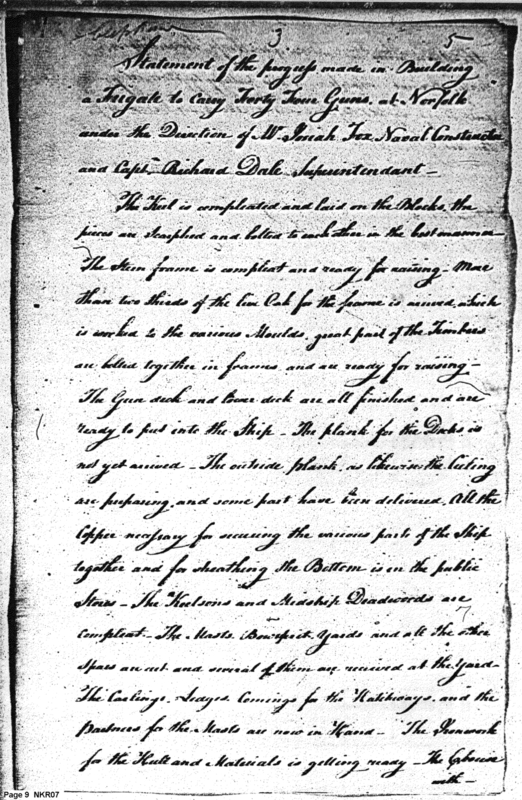 3
5
Statement of the progress made in Building
a Frigate to carry Forty Four Guns, at Norfolk
under the Direction of Mr Josiah Fox Naval Constructor
and Capt. Richard Dale Superintendant —
The Keel is compleated and laid on the Blocks, the
pieces are scarphed and bolted to each other in the best manner —
The Stern frame is compleat and ready for raising — More
than two thirds of the live Oak for the frame is arrived, which
is worked to the various Moulds, great part of the Timbers
are bolted together in frames, and are ready for raising —
The Gun deck and lower deck are all finished and are
ready to put into the Ship — The plank for the Decks is
not yet arrived — The outside plank, as likewise the Ceiling
are preparing, and some part have been delivered. All the
Copper necessary for securing the various parts of the Ship
together and for sheathing the Bottom is in the public
Stores — The Keelsons and Midship Deadwoods are
compleat — The Masts, Bowsprit, Yards and all the other
Spars are cut and several of them are received at the yard —
The Carlings, Ledges, Comings for the Hatchways, and the
Partners for the Masts are now in Hand — The Ironwork
for the Hull and Materials is getting ready — The
with —
Page 9 NKR07